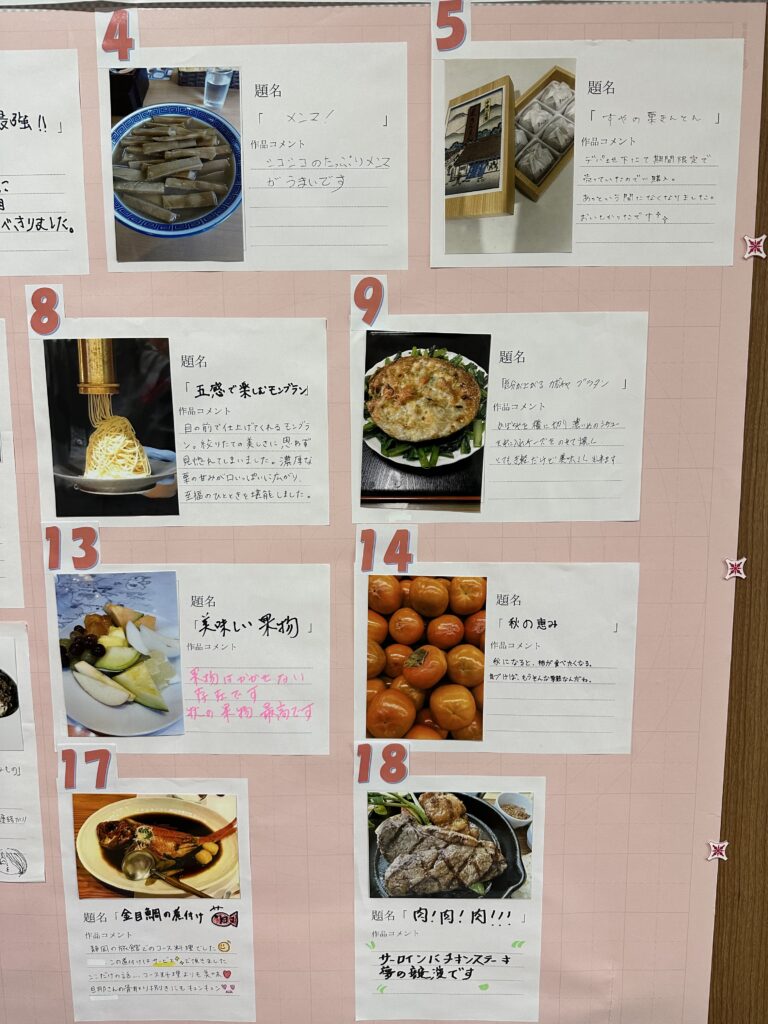 4
題名
「 メンマ! 」
作品コメント
シコシコのたっぷりメンマ
がうまいです
5
題名
「 すやの栗きんとん 」
作品コメント
デパ地下にて期間限定で
売っていたので購入。
あっという間になくなりました。
おいしかったです
最強!! 」
べきりました。
8
題名
「 五感で楽しむモンブラン」
作品コメント
目の前で仕上げてくれるモンブラ
ン。絞りたての美しさに思わず
見惚れてしまいました。濃厚な
栗の甘みが口いっぱいに広がり、
至福のひとときを堪能しました。
9
題名
グラタン 」
作品コメント
かぼちゃを
チーズをのせて焼く
とても手軽だけど美味しく出来ます
13
題名
「美味しい果物 」
作品コメント
果物はかかせない
存在です
秋の果物最高です
14
題名
「 秋の恵み 」
作品コメント
秋になると、柿が食べたくなる。
気づけば、もうそんな季節なんだね。
17
題名「金目鯛の煮付け
作品コメント
静岡の旅館でのコース料理でした
この煮付けはサービスで頂きました
ここだけの話...コース料理よりも美味
旦那さんの骨取り
にもキュンキュン
18
題名「 肉!肉!肉!!! 」
作品コメント
サーロインにチキンステーキ
夢の競演です